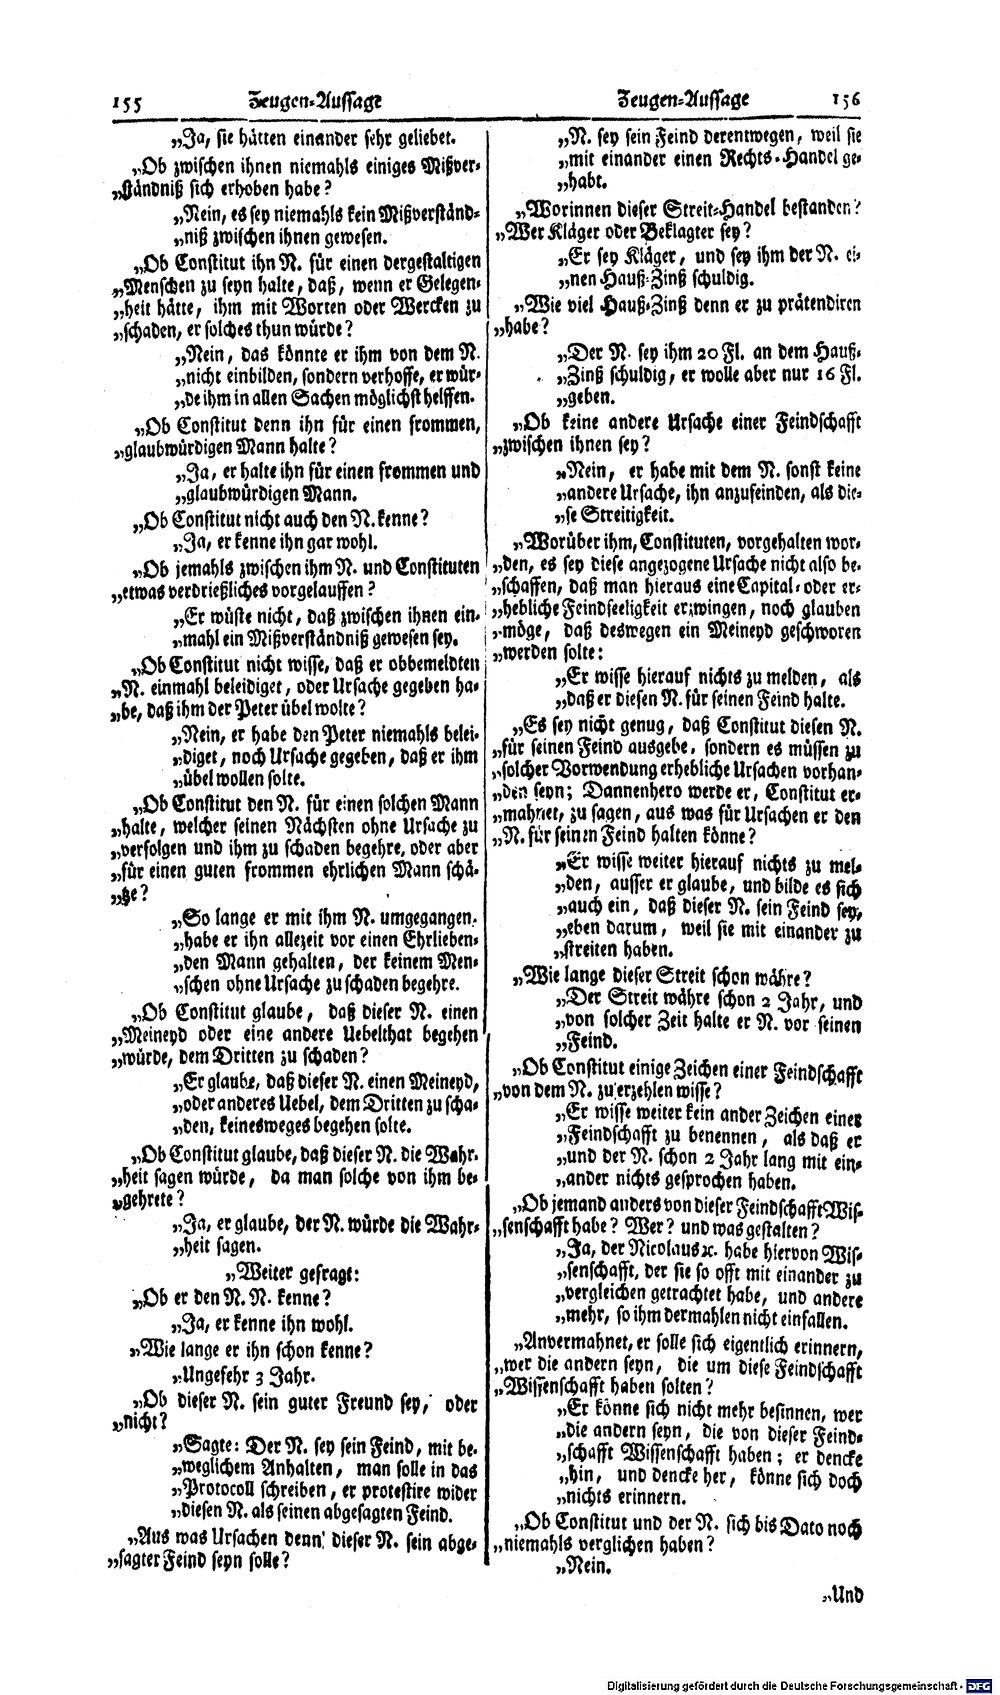 155 Zeugen-Aussage
„Ja, sie hätten einander sehr geliebet.
„Ob zwischen ihnen niemahls einiges Mißver-
„ständniß sich erhoben habe?
„Nein, es sey niemahls kein Mißverständ-
„niß zwischen ihnen gewesen.
„Ob Constitut ihn N. für einen dergestaltigen
„Menschen zu seyn halte, daß, wenn er Gelegen-
„heit hätte, ihm mit Worten oder Wercken zu
„schaden, er solches thun würde?
„Nein, das könnte er ihm von dem N.
„nicht einbilden, sondern verhoffe, er wür-
„de ihm in allen Sachen möglichst helffen.
„Ob Constitut denn ihn für einen frommen,
„glaubwürdigen Mann halte?
„Ja, er halte ihn für einen frommen und
„glaubwürdigen Mann.
„Ob Constitut nicht auch den N. kenne?
„Ja, er kenne ihn gar wohl.
„Ob jemahls zwischen ihm N. und Constituten
„etwas verdrießliches vorgelauffen?
„Er wüste nicht, daß zwischen ihnen ein-
„mahl ein Mißverständniß gewesen sey.
„Ob Constitut nicht wisse, daß er obbemeldten
„N. einmahl beleidiget, oder Ursache gegeben ha-
„be, daß ihm der Peter übel wolte?
„Nein, er habe den Peter niemahls belei-
„diget, noch Ursache gegeben, daß er ihm
„übel wollen solte.
„Ob Constitut den N. für einen solchen Mann
„halte, welcher seinen Nächsten ohne Ursache zu
„verfolgen und ihm zu schaden begehre, oder aber
„für einen guten frommen ehrlichen Mann schä-
„tze?
„So lange er mit ihm N. umgegangen,
„habe er ihn allezeit vor einen Ehrlieben-
„den Mann gehalten, der keinem Men-
„schen ohne Ursache zu schaden begehre.
„Ob Constitut glaube, daß dieser N. einen
„Meineyd oder eine andere Uebelthat begehen
„würde, dem Dritten zu schaden?
„Er glaube, daß dieser N. einen Meineyd,
„oder anderes Uebel, dem Dritten zu scha-
„den, keinesweges begehen solte.
„Ob Constitut glaube, daß dieser N. die Wahr-
„heit sagen würde, da man solche von ihm be-
„gehrete?
„Ja, er glaube, der N. würde die Wahr-
„heit sagen.
„Weiter gefragt:
„Ob er den N. N. kenne?
„Ja, er kenne ihn wohl.
„Wie lange er ihn schon kenne?
„Ungefehr 3 Jahr.
„Ob dieser N. sein guter Freund sey, oder
„nicht?
„Sagte: Der N. sey sein Feind, mit be-
„weglichem Anhalten, man solle in das
„Protocoll schreiben, er protestire wider
„diesen N. als seinen abgesagten Feind.
„Aus was Ursachen denn dieser N. sein abge-
„sagter Feind seyn solle?
Zeugen-Aussage 156
„N. sey sein Feind derentwegen, weil sie
„mit einander einen Rechts-Handel ge-
„habt.
„Worinnen dieser Streit-Handel bestanden?
„Wer Kläger oder Beklagter sey?
„Er sey Kläger, und sey ihm der N. ei-
„nen Hauß-Zinß schuldig.
„Wie viel Hauß-Zinß denn er zu prätendiren
„habe?
„Der N. sey ihm 20 Fl. an dem Hauß-
„Zinß schuldig, er wolle aber nur 16 Fl.
„geben.
„Ob keine andere Ursache einer Feindschafft
„zwischen ihnen sey?
„Nein, er habe mit dem N. sonst keine
„andere Ursache, ihn anzufeinden, als die-
„se Streitigkeit.
„Worüber ihm, Constituten, vorgehalten wor-
„den, es sey diese angezogene Ursache nicht also be-
„schaffen, daß man hieraus eine Capital- oder er-
„hebliche Feindseeligkeit erzwingen, noch glauben
„möge, daß deswegen ein Meineyd geschworen
„werden solte:
„Er wisse hierauf nichts zu melden, als
„daß er diesen N. für seinen Feind halte.
„Es sey nicht genug, daß Constitut diesen N.
„für seinen Feind ausgebe, sondern es müssen zu
„solcher Vorwendung erhebliche Ursachen vorhan-
„den seyn; Dannenhero werde er, Constitut er-
„mahnet, zu sagen, aus was für Ursachen er den
„N. für seinen Feind halten könne?
„Er wisse weiter hierauf nichts zu mel-
„den, ausser er glaube, und bilde es sich
„auch ein, daß dieser N. sein Feind sey,
„eben darum, weil sie mit einander zu
„streiten haben.
„Wie lange dieser Streit schon währe?
„Der Streit währe schon 2 Jahr, und
„von solcher Zeit halte er N. vor seinen
„Feind.
„Ob Constitut einige Zeichen einer Feindschafft
„von dem N. zu erzehlen wisse?
„Er wisse weiter kein ander Zeichen einer
„Feindschafft zu benennen, als daß er
„und der N. schon 2 Jahr lang mit ein-
„ander nichts gesprochen haben.
„Ob jemand anders von dieser Feindschafft Wis-
„senschafft habe? Wer? und was gestalten?
„Ja, der Nicolaus ꝛc. habe hiervon Wis-
„senschafft, der sie so offt mit einander zu
„vergleichen getrachtet habe, und andere
„mehr, so ihm dermahlen nicht einfallen.
„Anvermahnet, er solle sich eigentlich erinnern,
„wer die andern seyn, die um diese Feindschafft
„Wissenschafft haben solten?
„Er könne sich nicht mehr besinnen, wer
„die andern seyn, die von dieser Feind-
„schafft Wissenschafft haben; er dencke
„hin, und dencke her, könne sich doch
„nichts erinnern.
„Ob Constitut und der N. sich bis Dato noch
„niemahls verglichen haben?
„Nein.
„Und
Digitalisierung gefördert durch die Deutsche Forschungsgemeinschaft - DFG